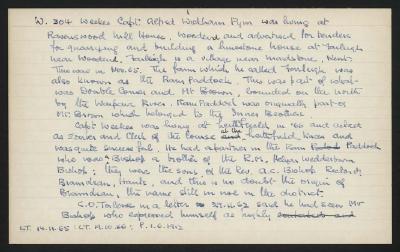 W. 304 Weekes Capt. Alfred Wedderburn Pym was living at
Ravenswood Mill House, Woodend and advertised for tenders
for quarrying and building a limestone house at Farleigh
near Woodend. Farleigh is a village near Maidstone, Kent.
This was in Nov. 65. The farm which he called Farleigh was
also known as the Ram Paddock. This was part of what
was Double Corner and Mt Brown, bounded on the north
by the River. Ram Paddock was originally part of
Mt. Brown which belonged to the Brothers
Capt Weekes was living at Heathfield in '66 and acted
as Starter and Clerk of the Course at the races and
was quite successful. He had a partner in the Ram Paddock
who was Bishop a brother of the R.M., Wedderburn
Bishop; they were the sons of the Rev. A.C. Bishop Rector,
Bramdean, Hants, and this is no doubt the origin of
Bramdean, the name still in use in the district.
C.O. in a letter 27.11.62 said he had seen Mr
Bishop who expressed himself as highly
LT. 14.11.65; LT. 14.10.66; P. 1.6.1912